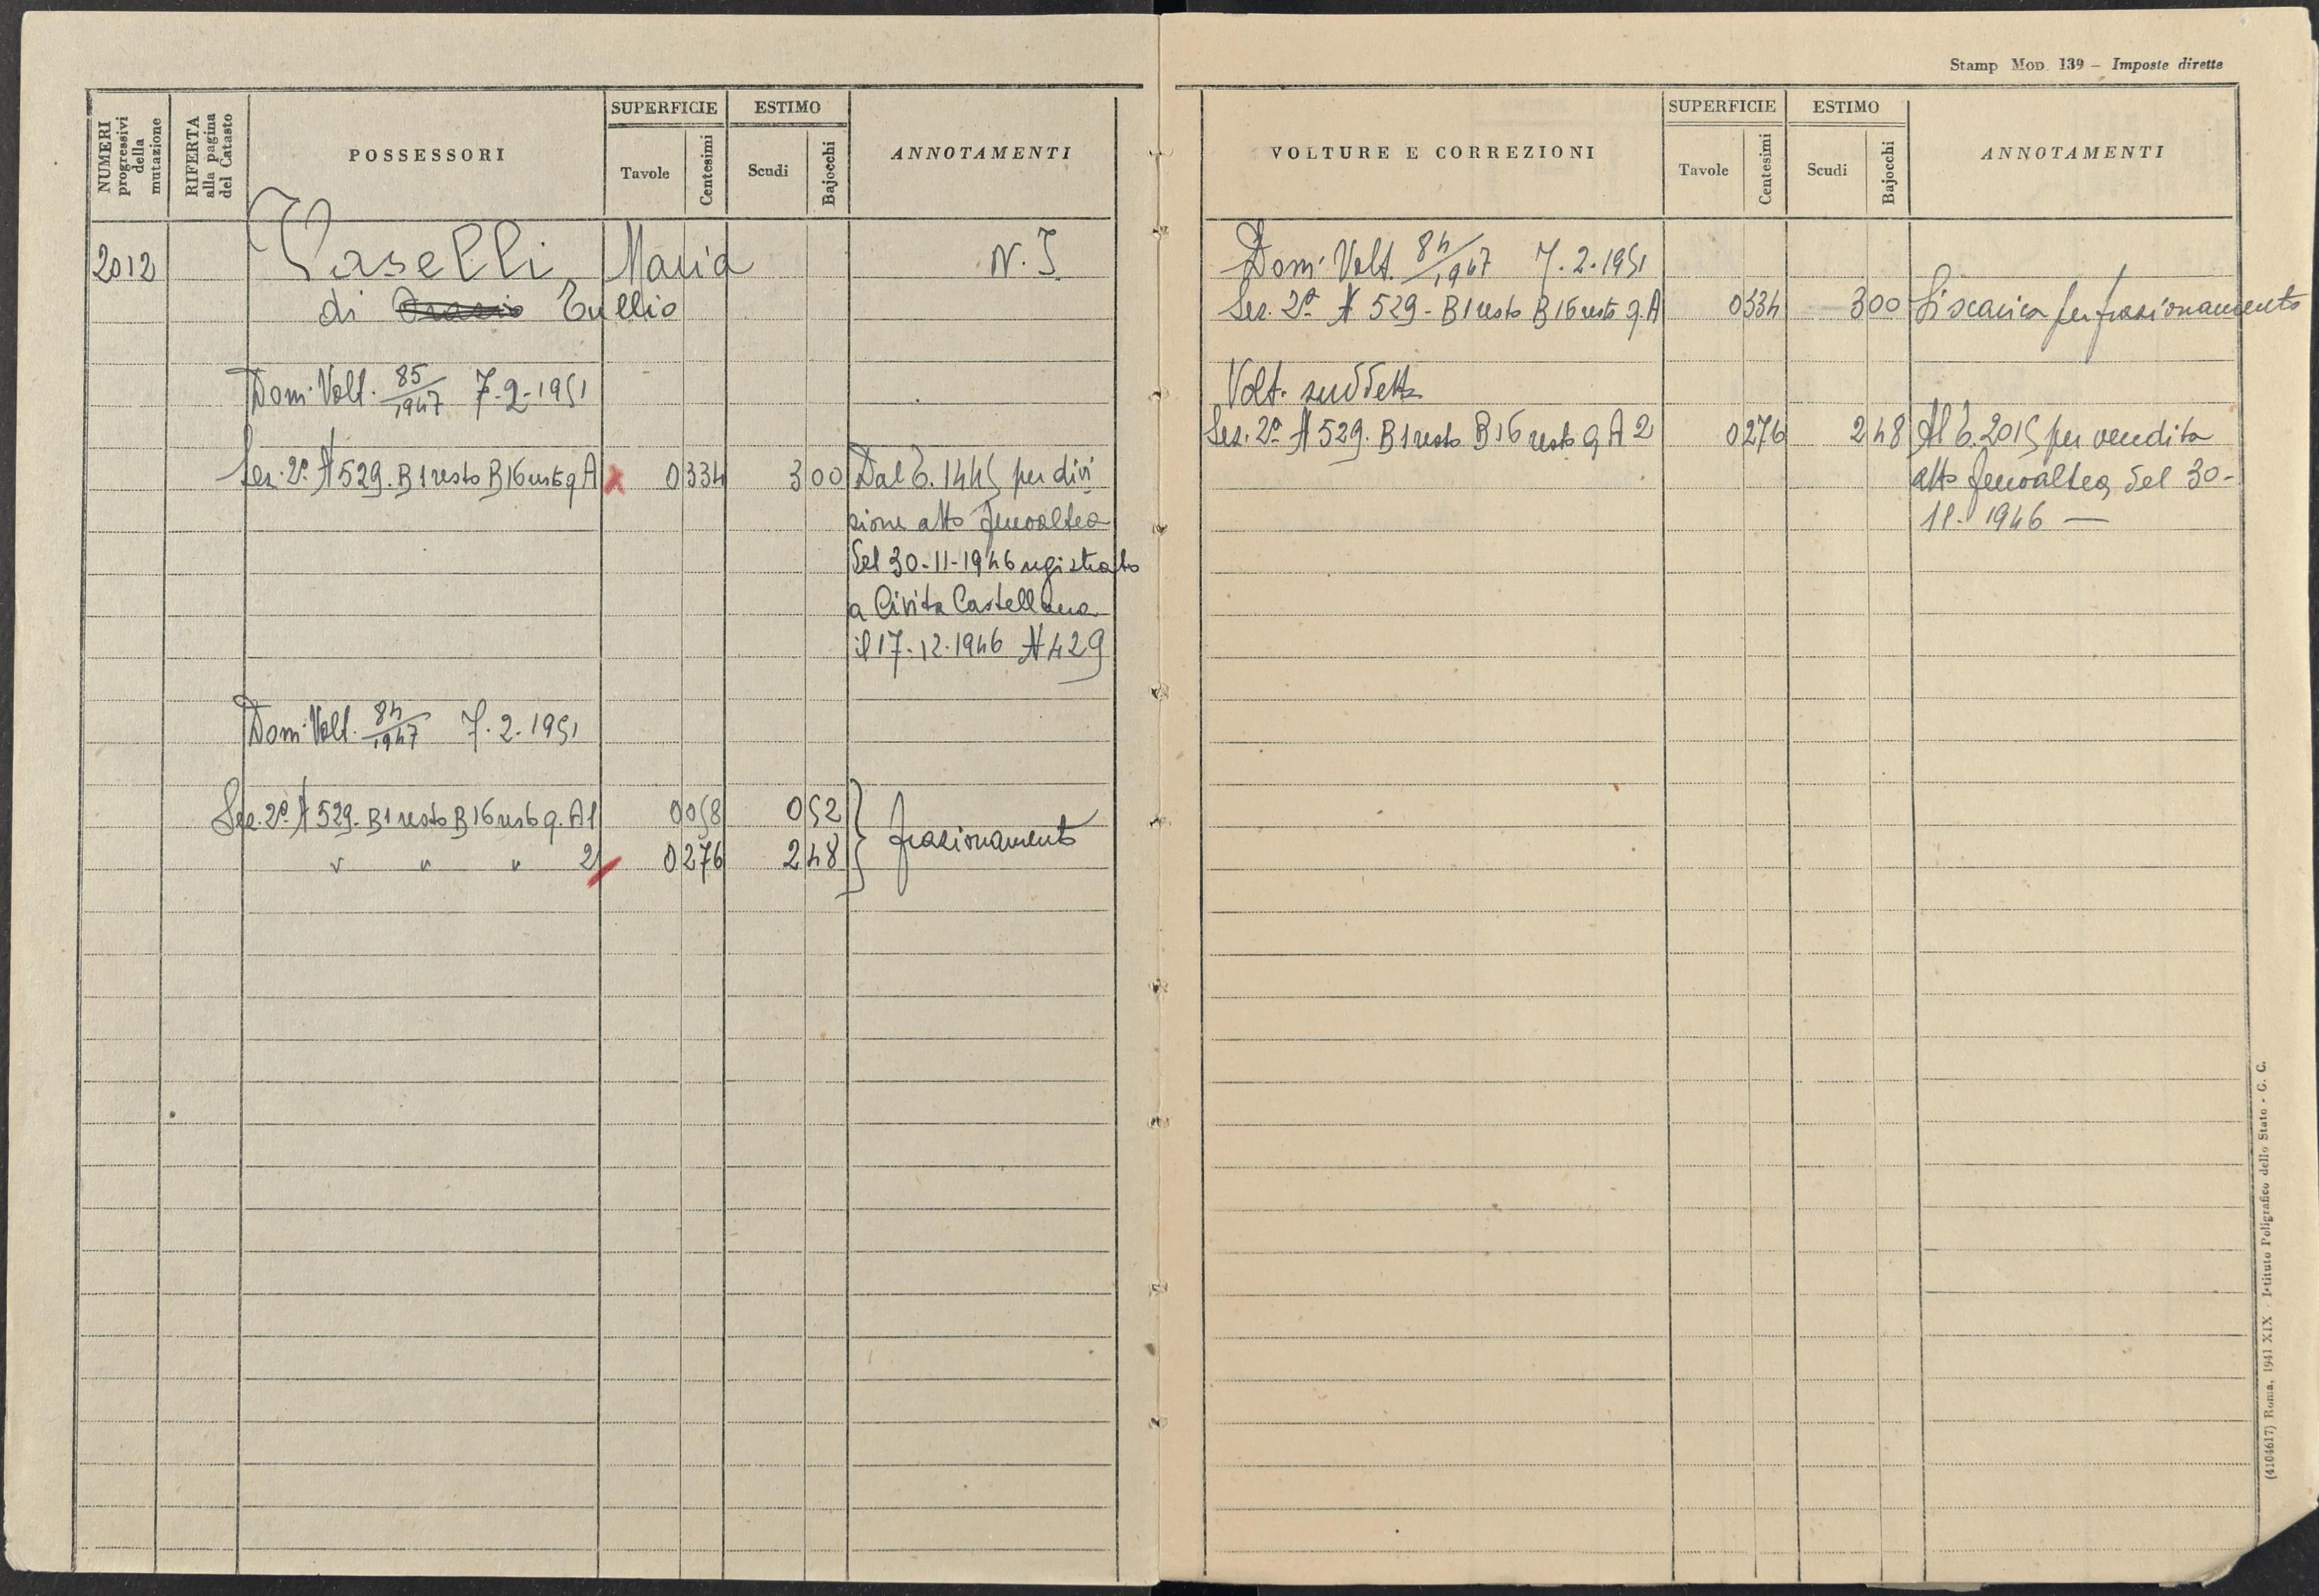 NUMERI progressivi della mutazione
RIFERTA alla pagina del Catasto
POSSESSORI
SUPERFICIE
Tavole
Centesimi
ESTIMO
Scudi
Bajocchi
ANNOTAMENTI
2012
Vaselli Maria
N. I.
di Orazio Tullio
Dom. Volt. 85/1947 7-2-1951
Sez. 2ª N 529. B1 resto B16 resto q A x 0 334 3 00
Dal T. 1445 per divi
sione atto Fenoaltea
del 30-11-1946 registrato
a Civita Castellana
il 17.12.1946 N 429
Dom. Volt. 84/1947 7.2.1951
Sez. 2ª N 529. B1 resto B16 resto q. A 1 0 058 0 52
" " " 2 0 276 2 48
frazionamento
Stamp Mod. 139 – Imposte dirette
VOLTURE E CORREZIONI
SUPERFICIE
Tavole
Centesimi
ESTIMO
Scudi
Bajocchi
ANNOTAMENTI
Dom. Volt. 84/1947 7.2.1951
Sez. 2ª N 529 - B1 resto B16 resto q. A 0 334 3 00 Si scarica per frazionamento
Volt. suddetta
Sez. 2ª N 529. B1 resto B16 resto q A 2 0 276 2 48 Al T. 2015 per vendita
atto Fenoaltea del 30-
11-1946 —
(4104617) Roma, 1941 XIX - Istituto Poligrafico dello Stato - G. C.